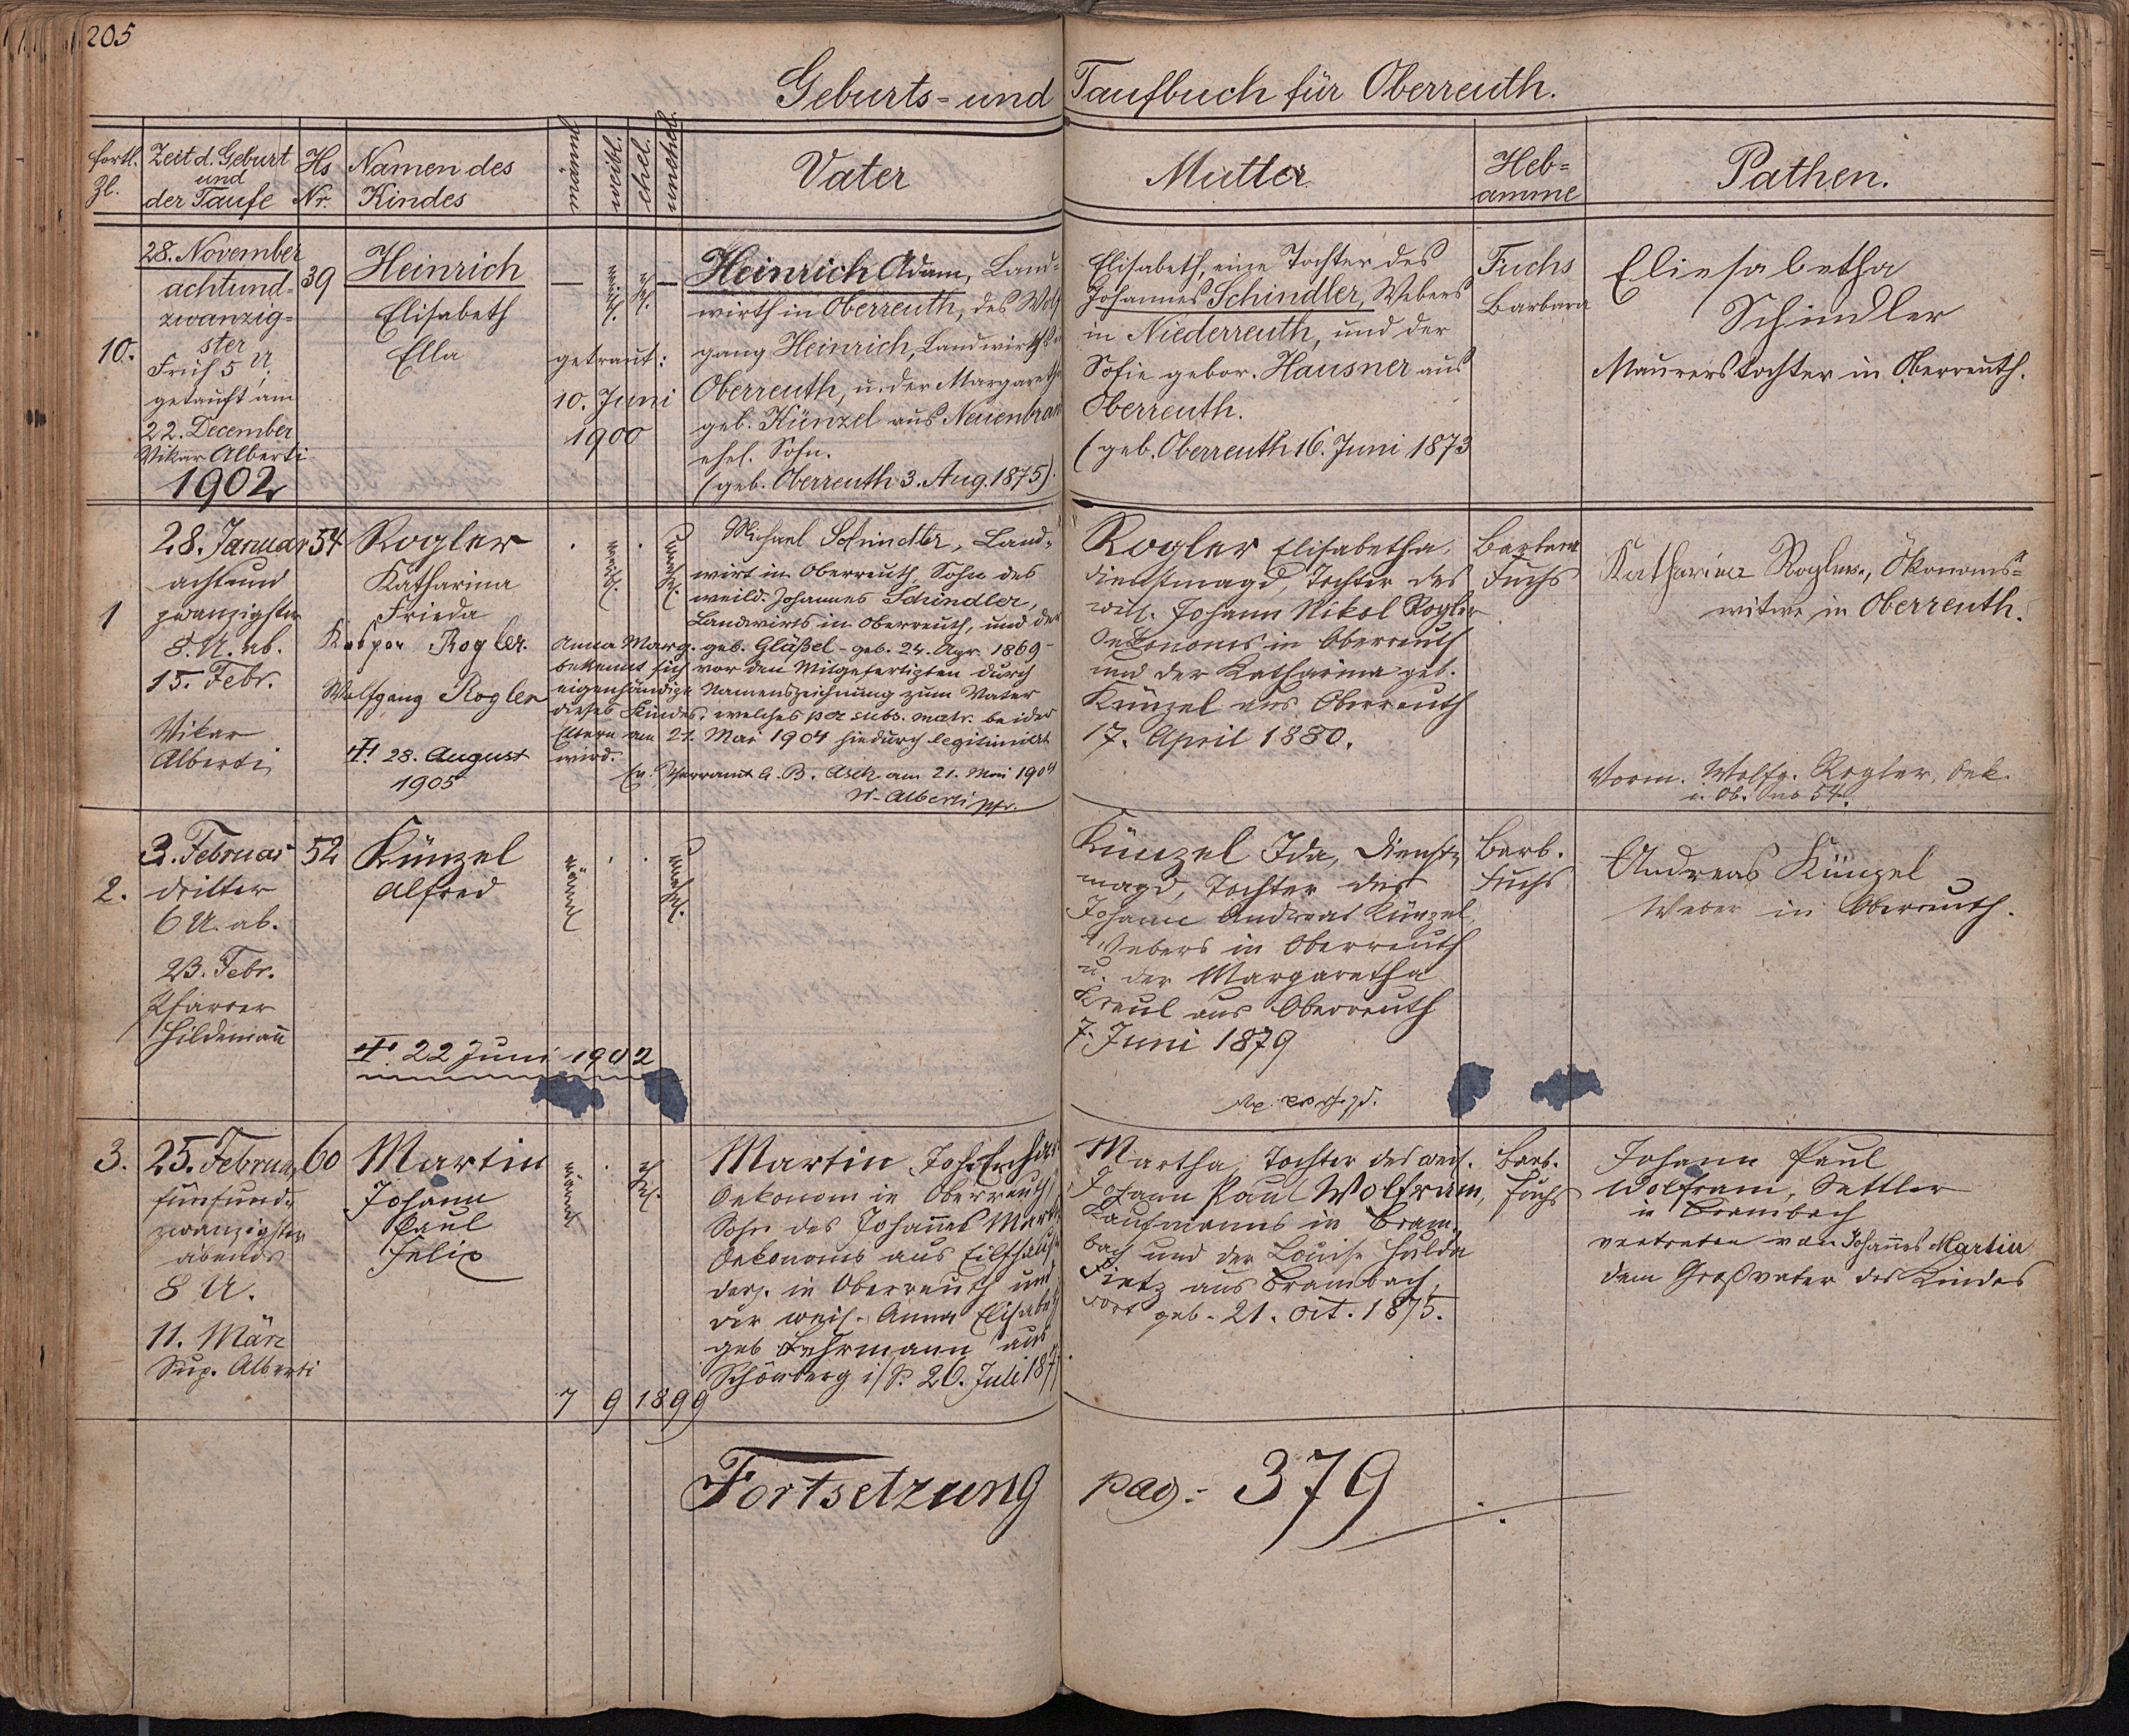 205
Geburts- und Taufbuch für Oberreuth.
fortl. Zl.
Zeit d. Geburt und der Taufe
Hs Nr.
Namen des Kindes
männl.
weibl.
ehel.
unehel.
Vater
Mutter
Heb=
amme
Pathen.
10.
28. November
achtund=
zwanzig=
ster
Früh 5 U.
getauft am
22. December
Vikar Alberti
39
Heinrich
Elisabeth
Ella
—
weibl.
ehl.
—
getraut:
10. Juni
1900
Heinrich Adam, Land=
wirth in Oberreuth, des Wolf
gang Heinrich, Landwirths
Oberreuth, u. der Margareth
geb. Künzel aus Neuenbran
ehel. Sohn.
(geb. Oberreuth 3. Aug. 1875).
Elisabeth, eine Tochter des
Johannes Schindler, Webers
in Niederreuth, und der
Sofie gebor. Hausner aus
Oberreuth.
(geb. Oberreuth 16. Juni 1873
Fuchs
Barbara
Eliesabetha
Schindler
Maurerstochter in Oberreuth.
1902
1
28. Januar
achtund
zwanzigster
8. U. ab.
15. Febr.
Vikar
Alberti
54
Rogler
Katharina
Frieda
Kaspar Rogler.
Wolfgang Rogler
28. August
1905
weibl.
unehl.
Michael Schindler, Land=
wirt in Oberreuth, Sohn des
weild. Johannes Schindler,
Landwirts in Oberreuth, und der
Anna Marg. geb. Gläßel - geb. 24. Apr. 1869 -
bekennt sich vor den Mitgefertigten durch
eigenhändige Namenszeichnung zum Vater
dieses Kindes, welches per subs. matr. beider
Eltern am 21. Mai 1904 hiedurch legitimiert
wird.
Ev. Pfarramt A. B. Asch am 21. Mai 1904
Alberti Pfr.
Rogler Elisabetha,
Dienstmagd, Tochter des
weil. Johann Nikol Rogler
Oekonoms in Oberreuth
und der Katharina geb.
Künzel aus Oberreuth
17. April 1880.
Barbara
Fuchs
Katharina Rogler, Ökonoms=
witwe in Oberreuth.
Vorm. Wolfg. Rogler, Oek.
i. Ob. No 54.
2.
3. Februar
dritter
6 U. ab.
23. Febr.
Pfarrer
Hildemañ
52
Künzel
Alfred
22 Juni 1902
männl
unehl.
Künzel Ida, Dienst=
magd, Tochter des
Johann Andreas Künzel
Webers in Oberreuth
u. der Margaretha
Kreul aus Oberreuth
7. Juni 1879
Barb.
Fuchs
Andreas Künzel
Weber in Oberreuth.
3.
25. Februar
fünfund=
zwanzigster
abends
8 U.
11. März
Sup. Alberti
60
Martin
Johann
Paul
Felix
männl
ehl.
7 9 1899
Martin Joh. Erhar
Oekonom in Oberreuth,
Sohn des Johañes Mart
Oekonoms aus
ders. in Oberreuth und
der weil. Anna Elisabeth
geb Lehrmann aus
Schönberg i/S. 26. Juli 187
Martha, Tochter des weil.
Johann Paul Wolfram,
Kaufmanns in Bram=
bach und der Louise Hulda
Fietz aus Brambach,
dort geb. 21. Oct. 1875.
Barb.
Fuchs
Johann Paul
Wolfram, Sattler
in Brambach
vertreten von Johañes Martin
dem Großvater des Kindes
Fortsetzung pag: 379